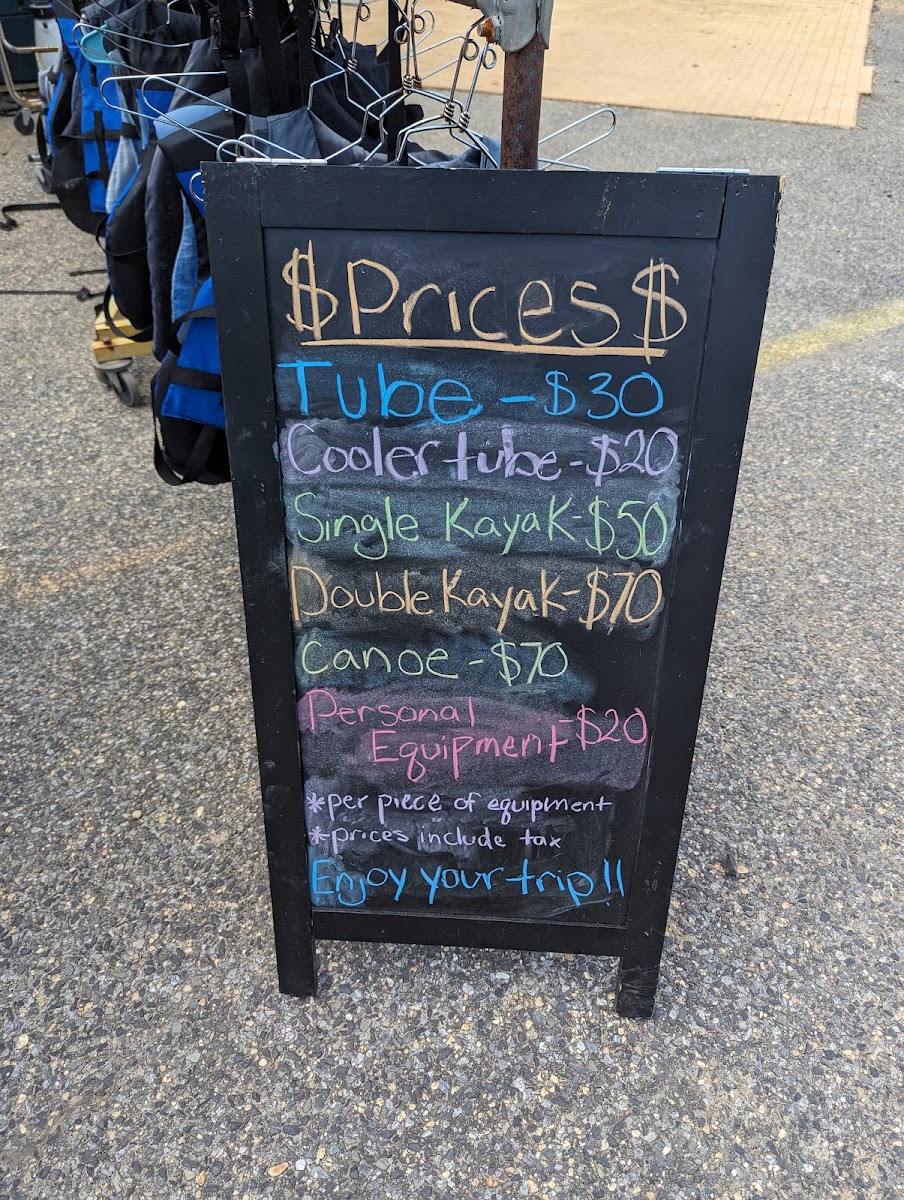 $Prices$
Tube - $30
Cooler tube - $20
Single Kayak - $50
Double Kayak - $70
Canoe - $70
Personal
Equipment - $20
*per piece of equipment
*prices include tax
Enjoy your trip!!